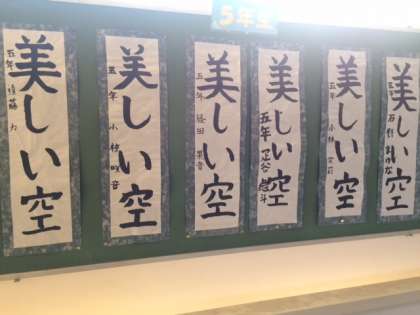 5年生
美しい空
五年
美しい空
五年 小林
美しい空
五年
美しい空
五年
美しい空
五年 小林
美しい空
五年